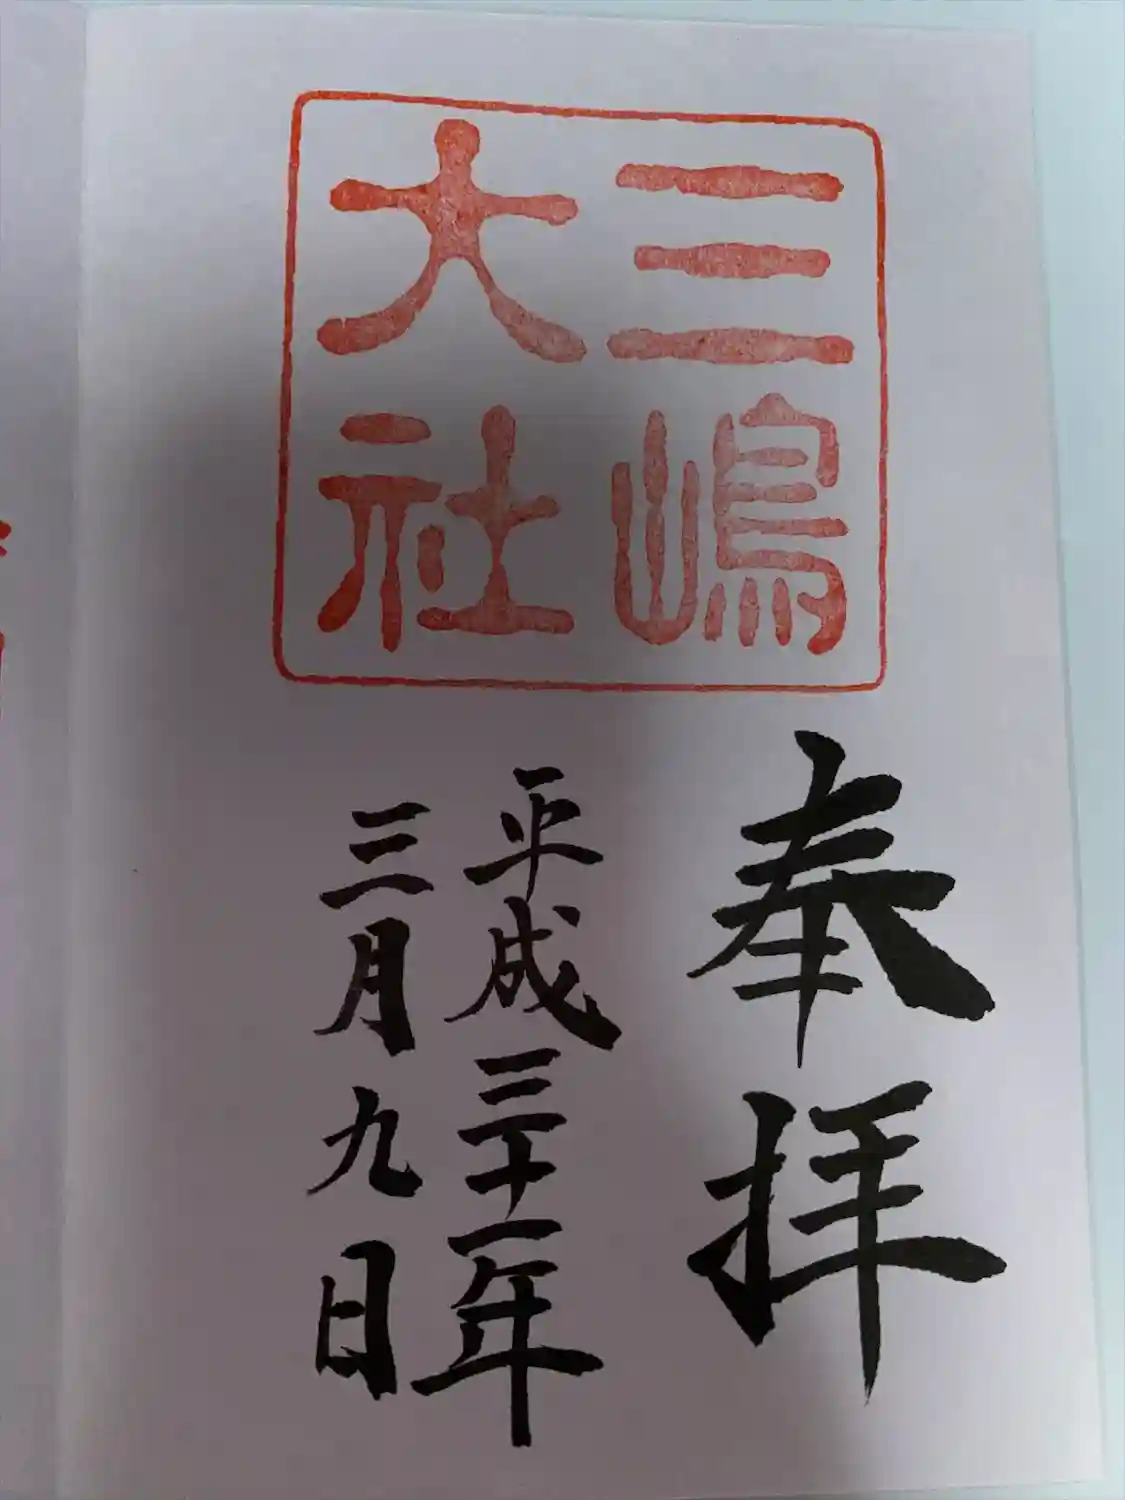 三嶋
大社
奉拝
平成三十一年
三月九日